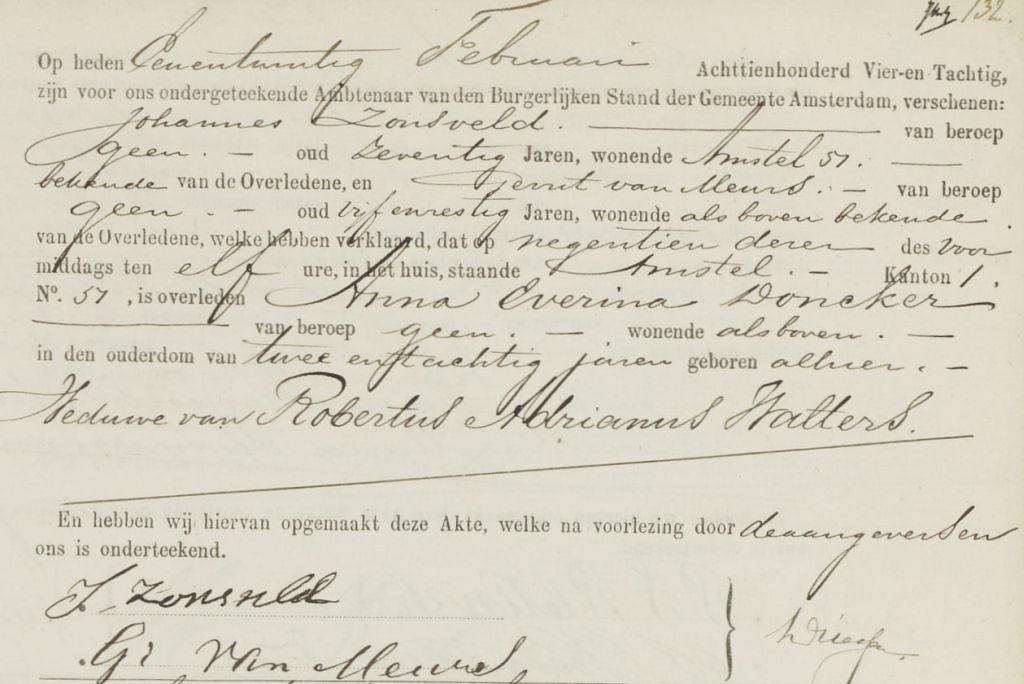 132.
Op heden Eenentwintig Februari Achttienhonderd Vier-en-Tachtig,
zijn voor ons ondergeteekende Ambtenaar van den Burgerlijken Stand der Gemeente Amsterdam, verschenen:
Johannes Zonsveld. — van beroep
geen. — oud Zeventig Jaren, wonende Amstel 51. —
bekende van de Overledene, en Gerrit van Meurs. — van beroep
geen. — oud Vijfenzestig Jaren, wonende als boven bekende
van de Overledene, welke hebben verklaard, dat op negentien dezer des voor
middags ten elf ure, in het huis, staande Amstel. — Kanton 1.
No. 51, is overleden Anna Everina Doncker
— van beroep geen. — wonende als boven. —
in den ouderdom van twee en tachtig jaren geboren alhier. —
Weduwe van Robertus Adrianus Walters.
En hebben wij hiervan opgemaakt deze Akte, welke na voorlezing door de aangevers en
ons is onderteekend.
J. Zonsveld
Gt van Meurs